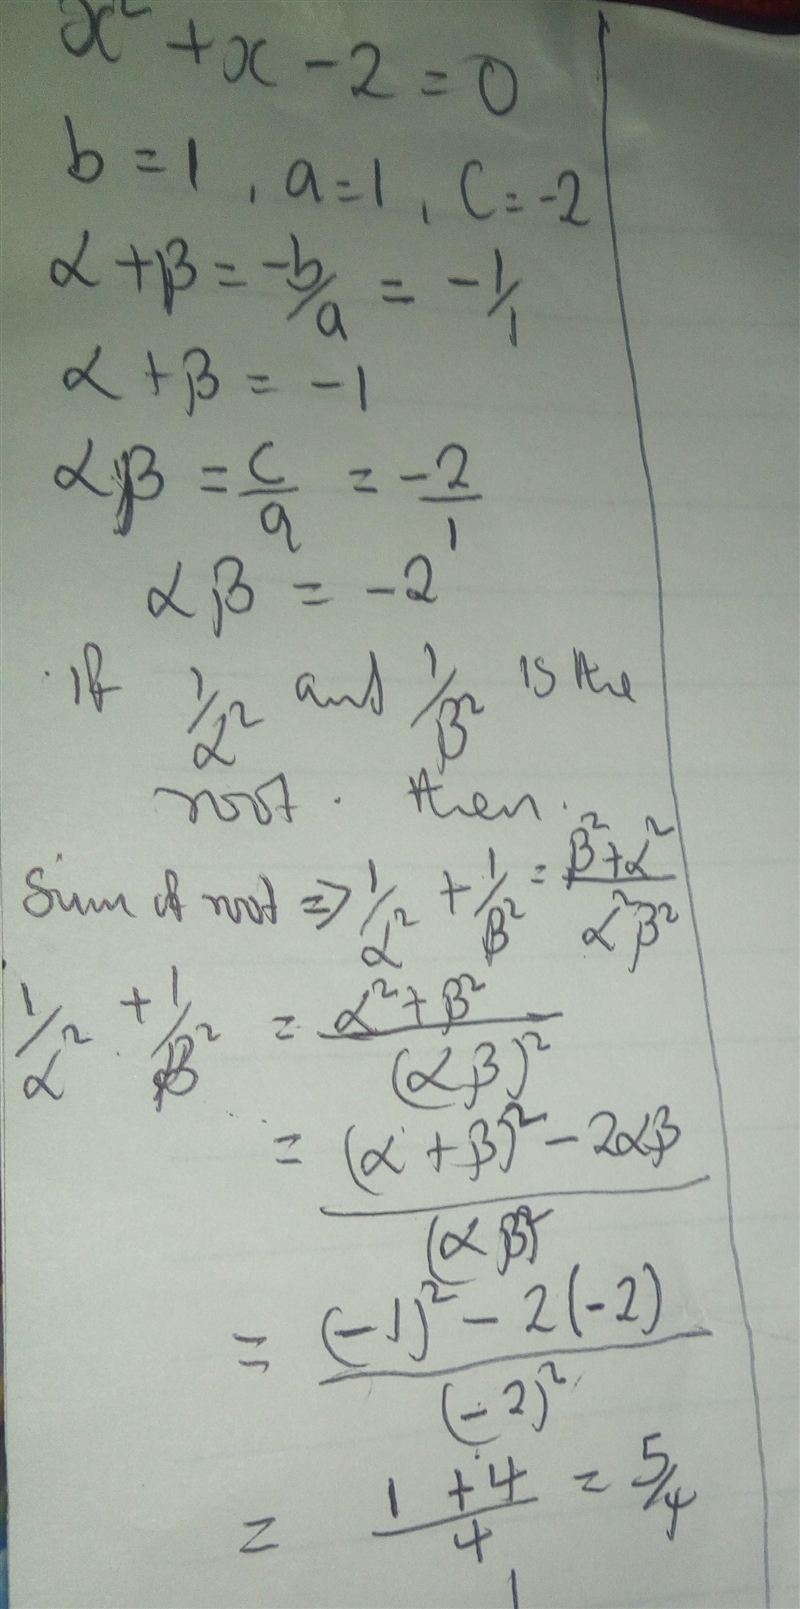 x² + x - 2 = 0
b = 1 , a = 1 , C = -2
α + β = -b/a = -1/1
α + β = -1
αβ = c/a = -2/1
αβ = -2
If 1/α² and 1/β² is the
root . then .
Sum of root => 1/α² + 1/β² = β² + α² / α²β²
1/α² + 1/β² = α² + β² / (αβ)²
= (α + β)² - 2αβ / (αβ)²
= (-1)² - 2(-2) / (-2)²
= 1 + 4 / 4 = 5/4